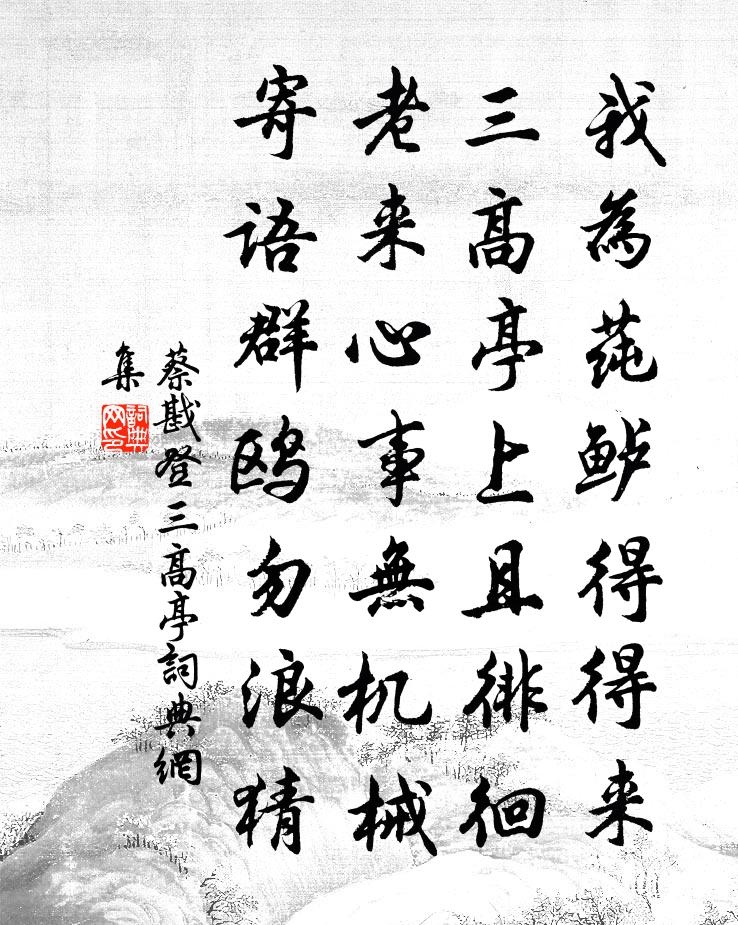 我為莼鲈得得来
三高亭上且徘徊
老来心事無机械
寄语群鸥勿浪猜
蔡戡登三高亭詞典網
集
詞典
网印